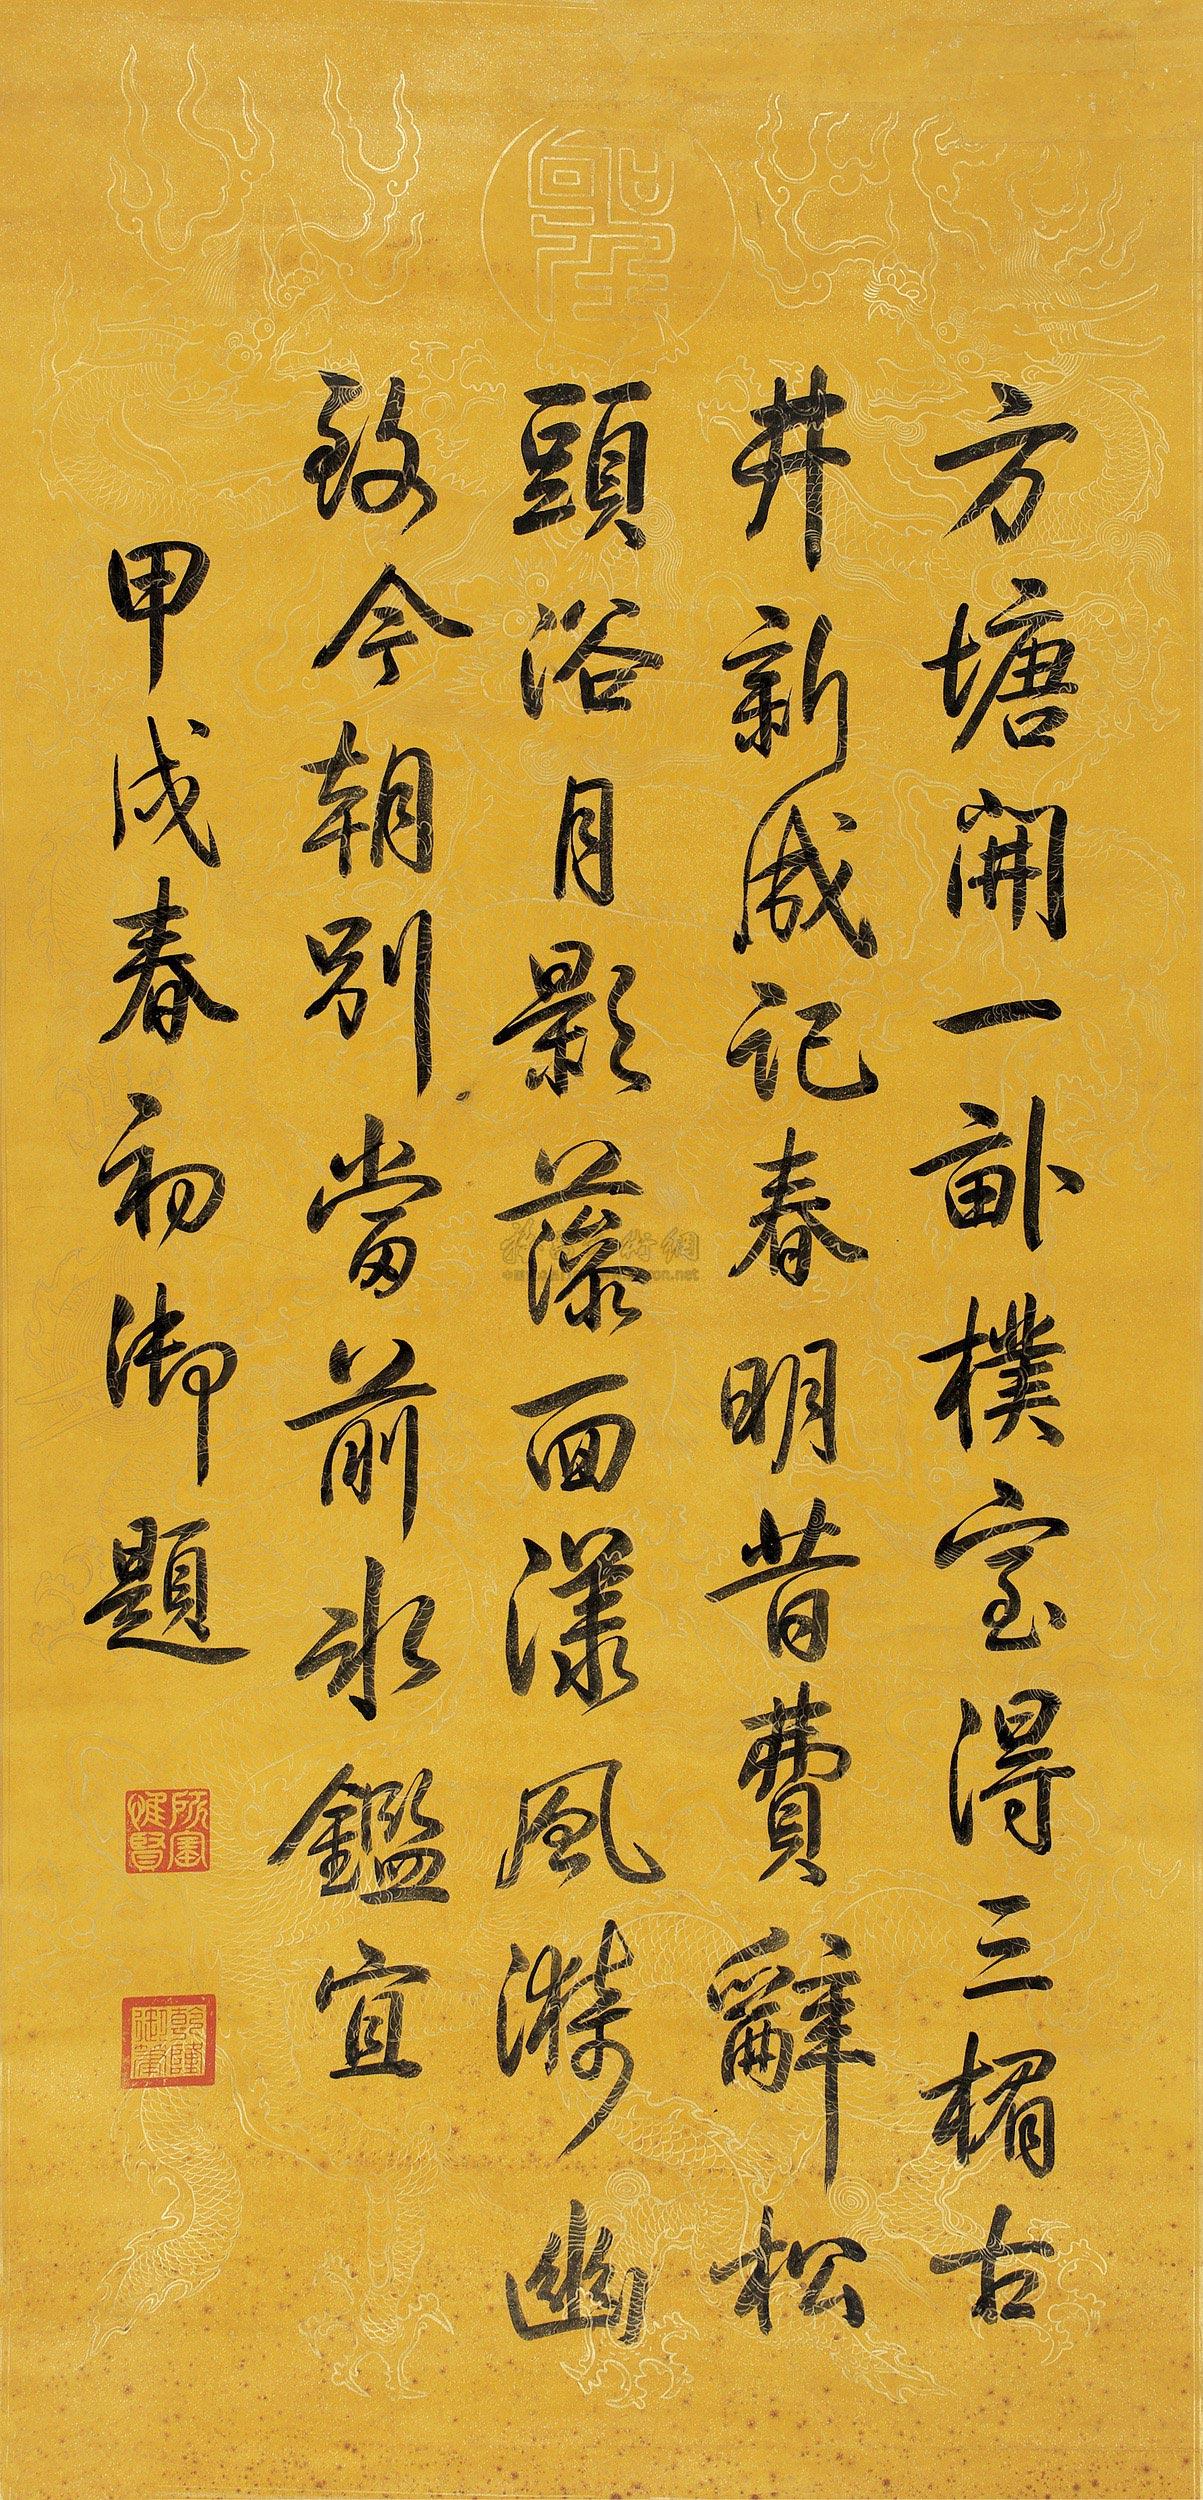 方塘開一畝樸室得三楣古
井新成記春明昔費辭松
頭浴月影藻面漾風漪幽
致今朝別當前水鑑宜
甲戌春初御題
所寶惟賢
乾隆御筆